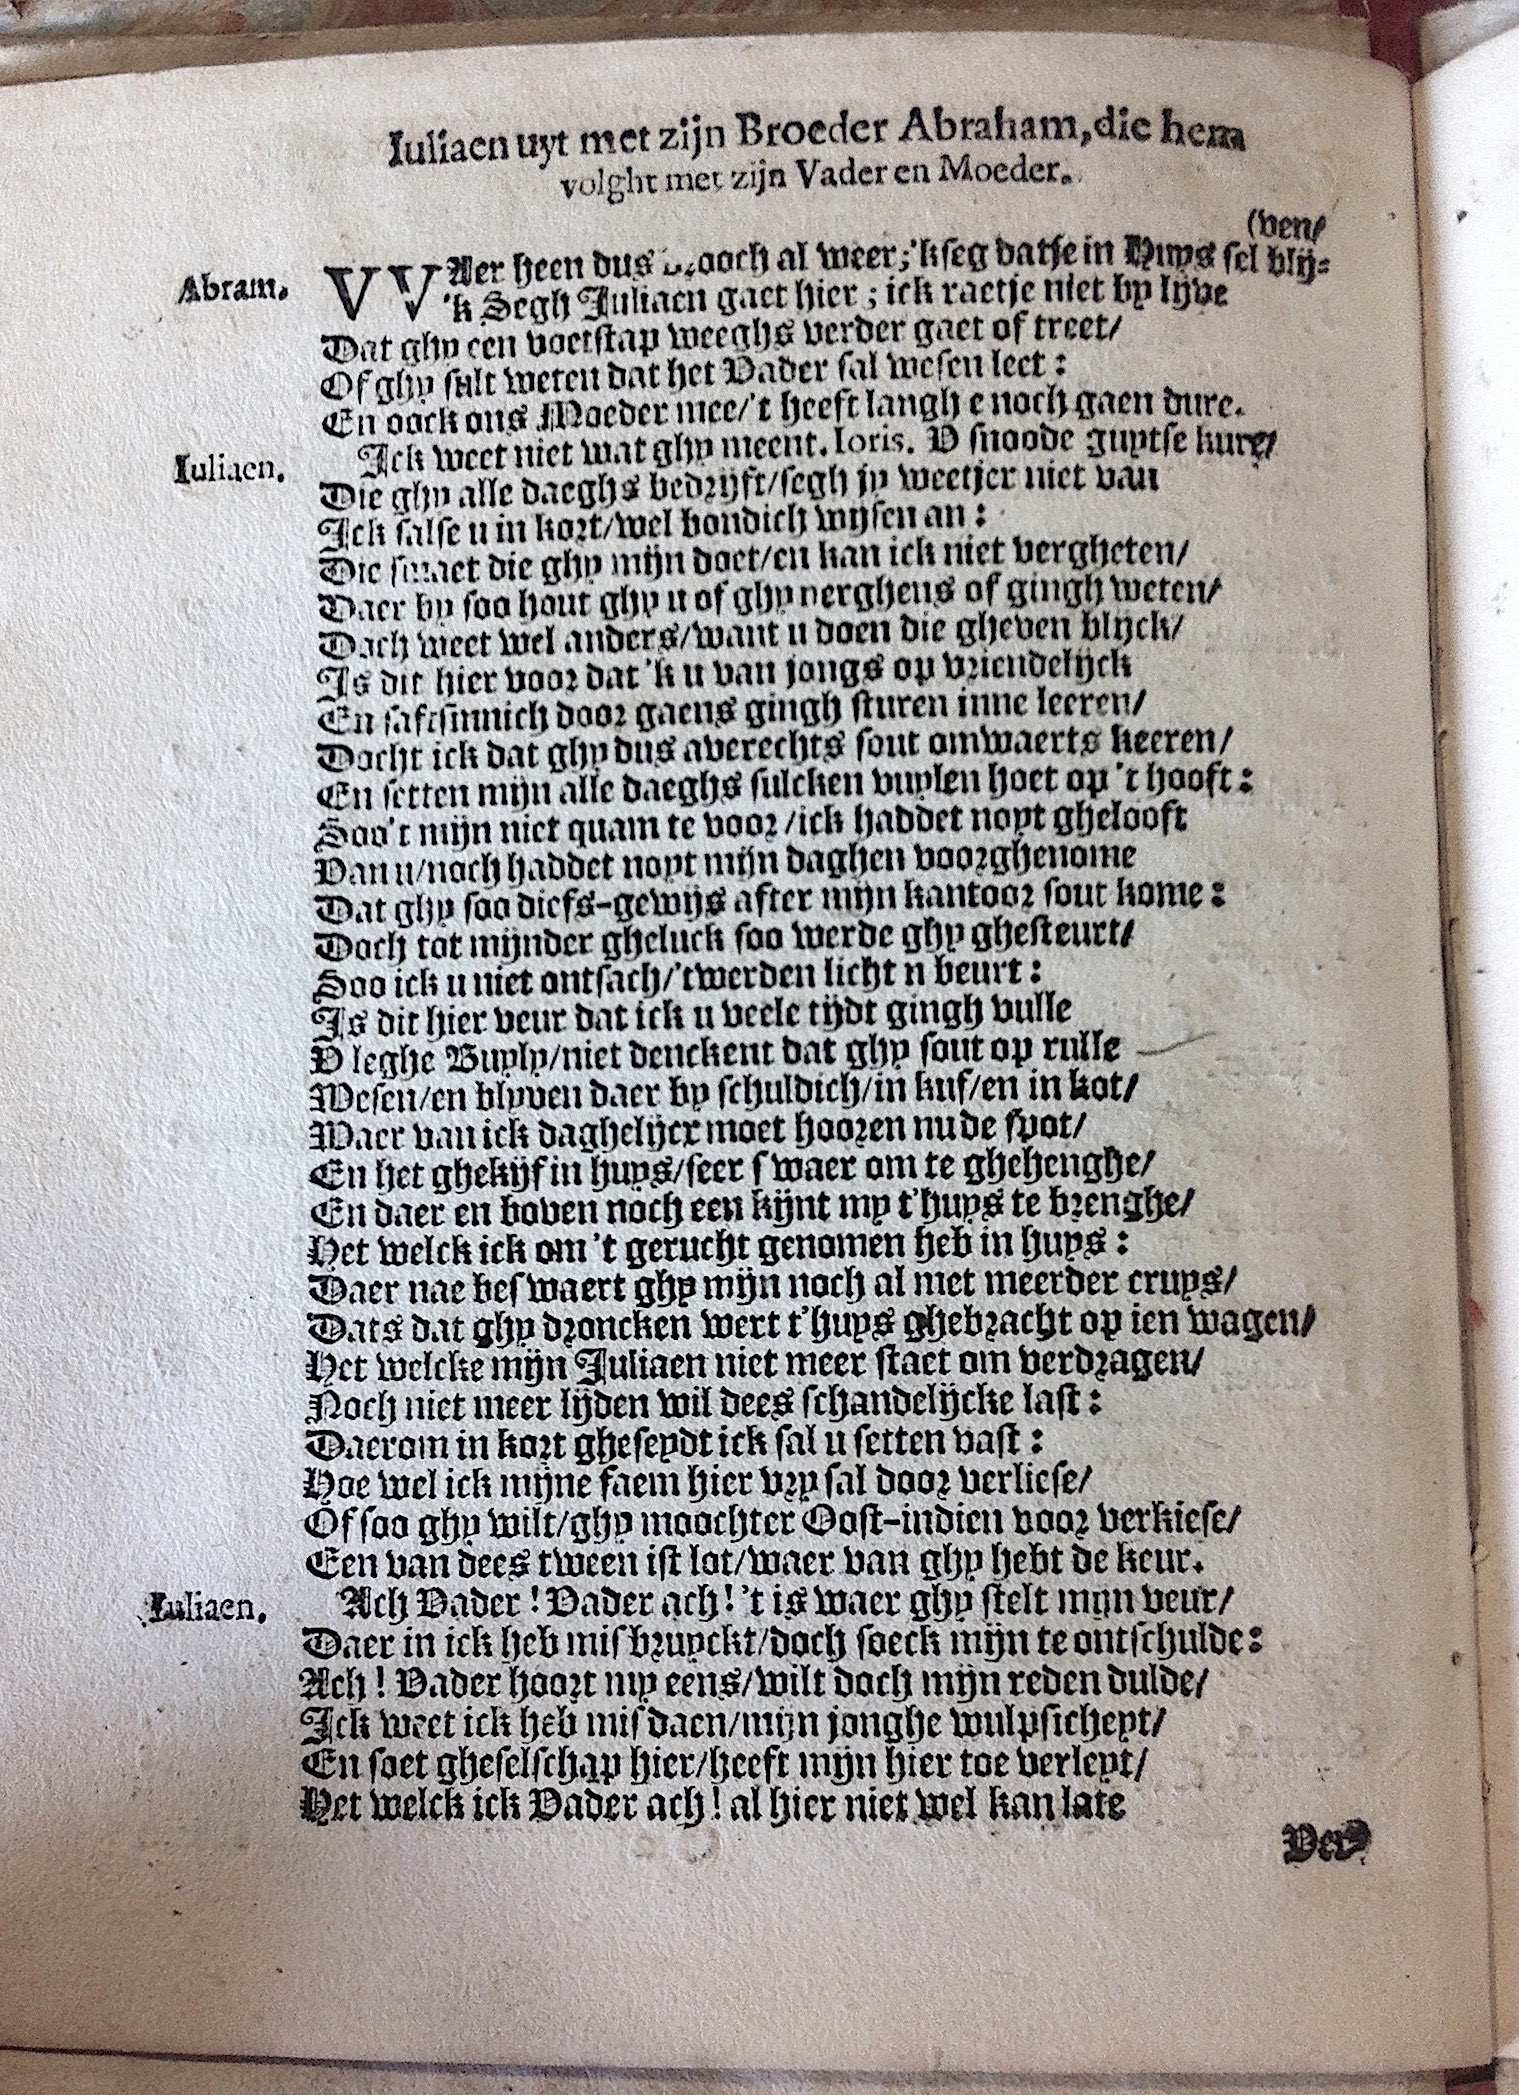 Iuliaen uyt met zijn Broeder Abraham, die hem
volght met zijn Vader en Moeder.
(ven/
Abram. VVAer heen dus vrooch al weer; 'kseg datje in Huys sel blij=
'k Segh Juliaen gaet hier; ick raetje niet by lijve
Dat ghy een voetstap weeghs verder gaet of treet/
Of ghy sult weten dat het Vader sal wesen leet:
En oock ons Moeder mee/'t heeft langh e noch gaen dure.
Iuliaen. Ick weet niet wat ghy meent. Ioris. V snoode guytse kure/
Die ghy alle daeghs bedrijft/segh jy weetjer niet van
Ick salse u in kort/wel bondich wijsen an:
Die smaet die ghy mijn doet/en kan ick niet vergheten/
Daer by soo hout ghy u of ghy nerghens of gingh weten/
Dach weet wel anders/want u doen die gheven blijck/
Is dit hier voor dat 'k u van jongs op vriendelijck
En saftsinnich door gaens gingh sturen inne leeren/
Docht ick dat ghy dus averechts sout omwaerts keeren/
En setten mijn alle daeghs sulcken vuylen hoet op 't hooft:
Soo't mijn niet quam te voor/ick haddet noyt ghelooft
Van u/noch haddet noyt mijn daghen voorghenome
Dat ghy soo diefs-gewijs after mijn kantoor sout kome:
Doch tot mijnder gheluck soo werde ghy ghesteurt/
Soo ick u niet ontsach/'twerden licht n beurt:
Is dit hier veur dat ick u veele tijdt gingh vulle
V leghe Buyly/niet denckent dat ghy sout op rulle
Wesen/en blyven daer by schuldich/in kuf/en in kot/
Waer van ick daghelijcx moet hooren nu de spot/
En het ghekijf in huys/seer swaer om te ghehenghe/
En daer en boven noch een kijnt my t'huys te brenghe/
Het welck ick om 't gerucht genomen heb in huys:
Daer nae beswaert ghy mijn noch al met meerder cruys/
Dats dat ghy droncken wert t'huys ghebracht op ien wagen/
Het welcke mijn Juliaen niet meer staet om verdragen/
Noch niet meer lijden wil dees schandelijcke last:
Daerom in kort gheseydt ick sal u setten vast:
Hoe wel ick mijne faem hier vry sal door verliese/
Of soo ghy wilt/ghy moochter Oost-indien voor verkiese/
Een van dees tween ist lot/waer van ghy hebt de keur.
Iuliaen. Ach Vader! Vader ach! 't is waer ghy stelt mijn veur/
Daer in ick heb misbruyckt/doch soeck mijn te ontschulde:
Ach! Vader hoort my eens/wilt doch mijn reden dulde/
Ick weet ick heb misdaen/mijn jonghe wulpsicheyt/
En soet gheselschap hier/heeft mijn hier toe verleyt/
Het welck ick Vader ach! al hier niet wel kan late
Ver